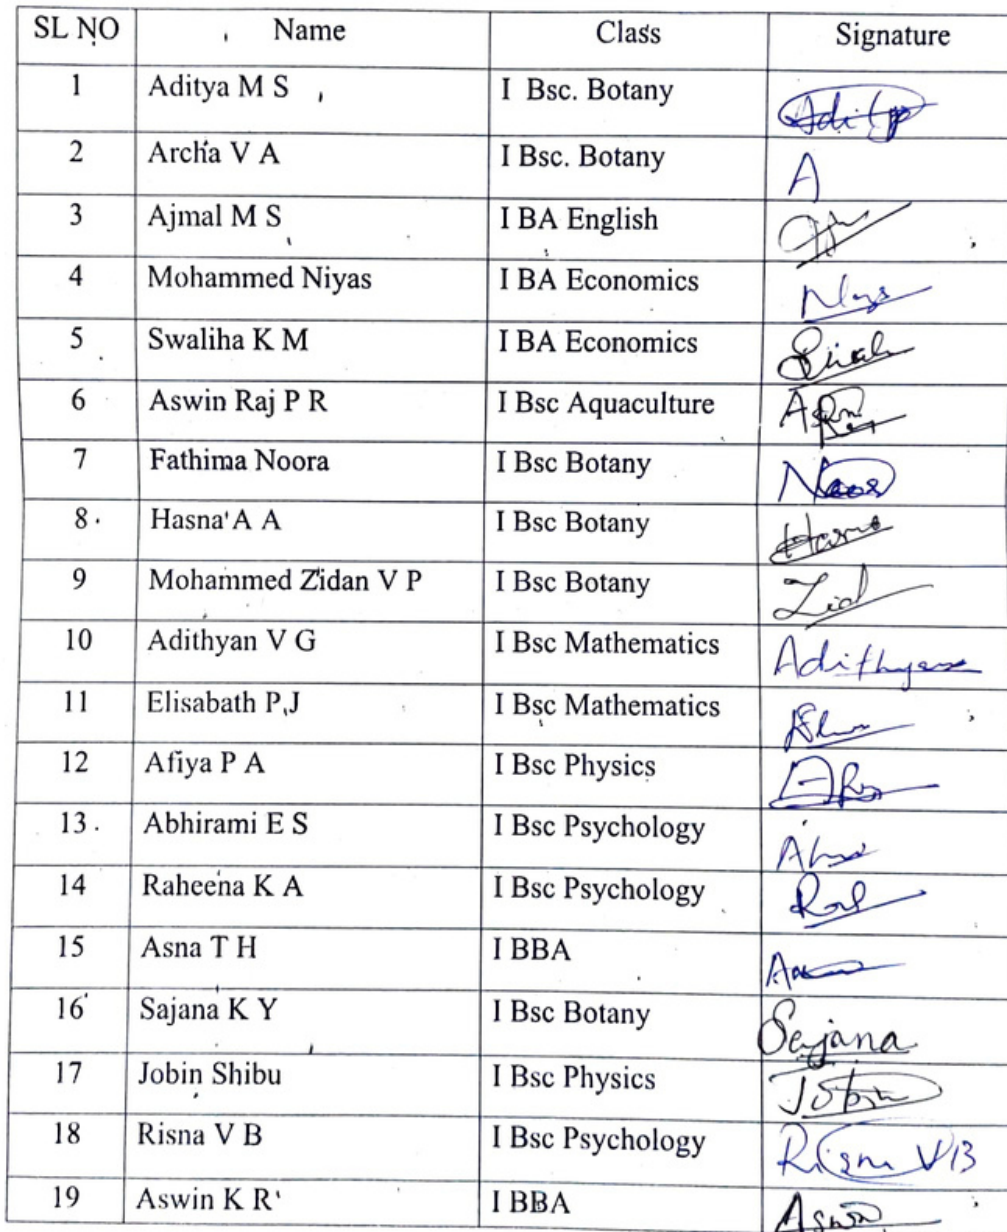 SL NO Name Class Signature
1 Aditya M S I Bsc. Botany
2 Archa V A I Bsc. Botany A
3 Ajmal M S I BA English
4 Mohammed Niyas I BA Economics
5 Swaliha K M I BA Economics
6 Aswin Raj P R I Bsc Aquaculture
7 Fathima Noora I Bsc Botany
8 Hasna A A I Bsc Botany
9 Mohammed Zidan V P I Bsc Botany
10 Adithyan V G I Bsc Mathematics Adithyan
11 Elisabath P.J I Bsc Mathematics
12 Afiya P A I Bsc Physics
13 Abhirami E S I Bsc Psychology
14 Raheena K A I Bsc Psychology
15 Asna T H I BBA
16 Sajana K Y I Bsc Botany Sajana
17 Jobin Shibu I Bsc Physics Jobin
18 Risna V B I Bsc Psychology Risna VB
19 Aswin K R I BBA